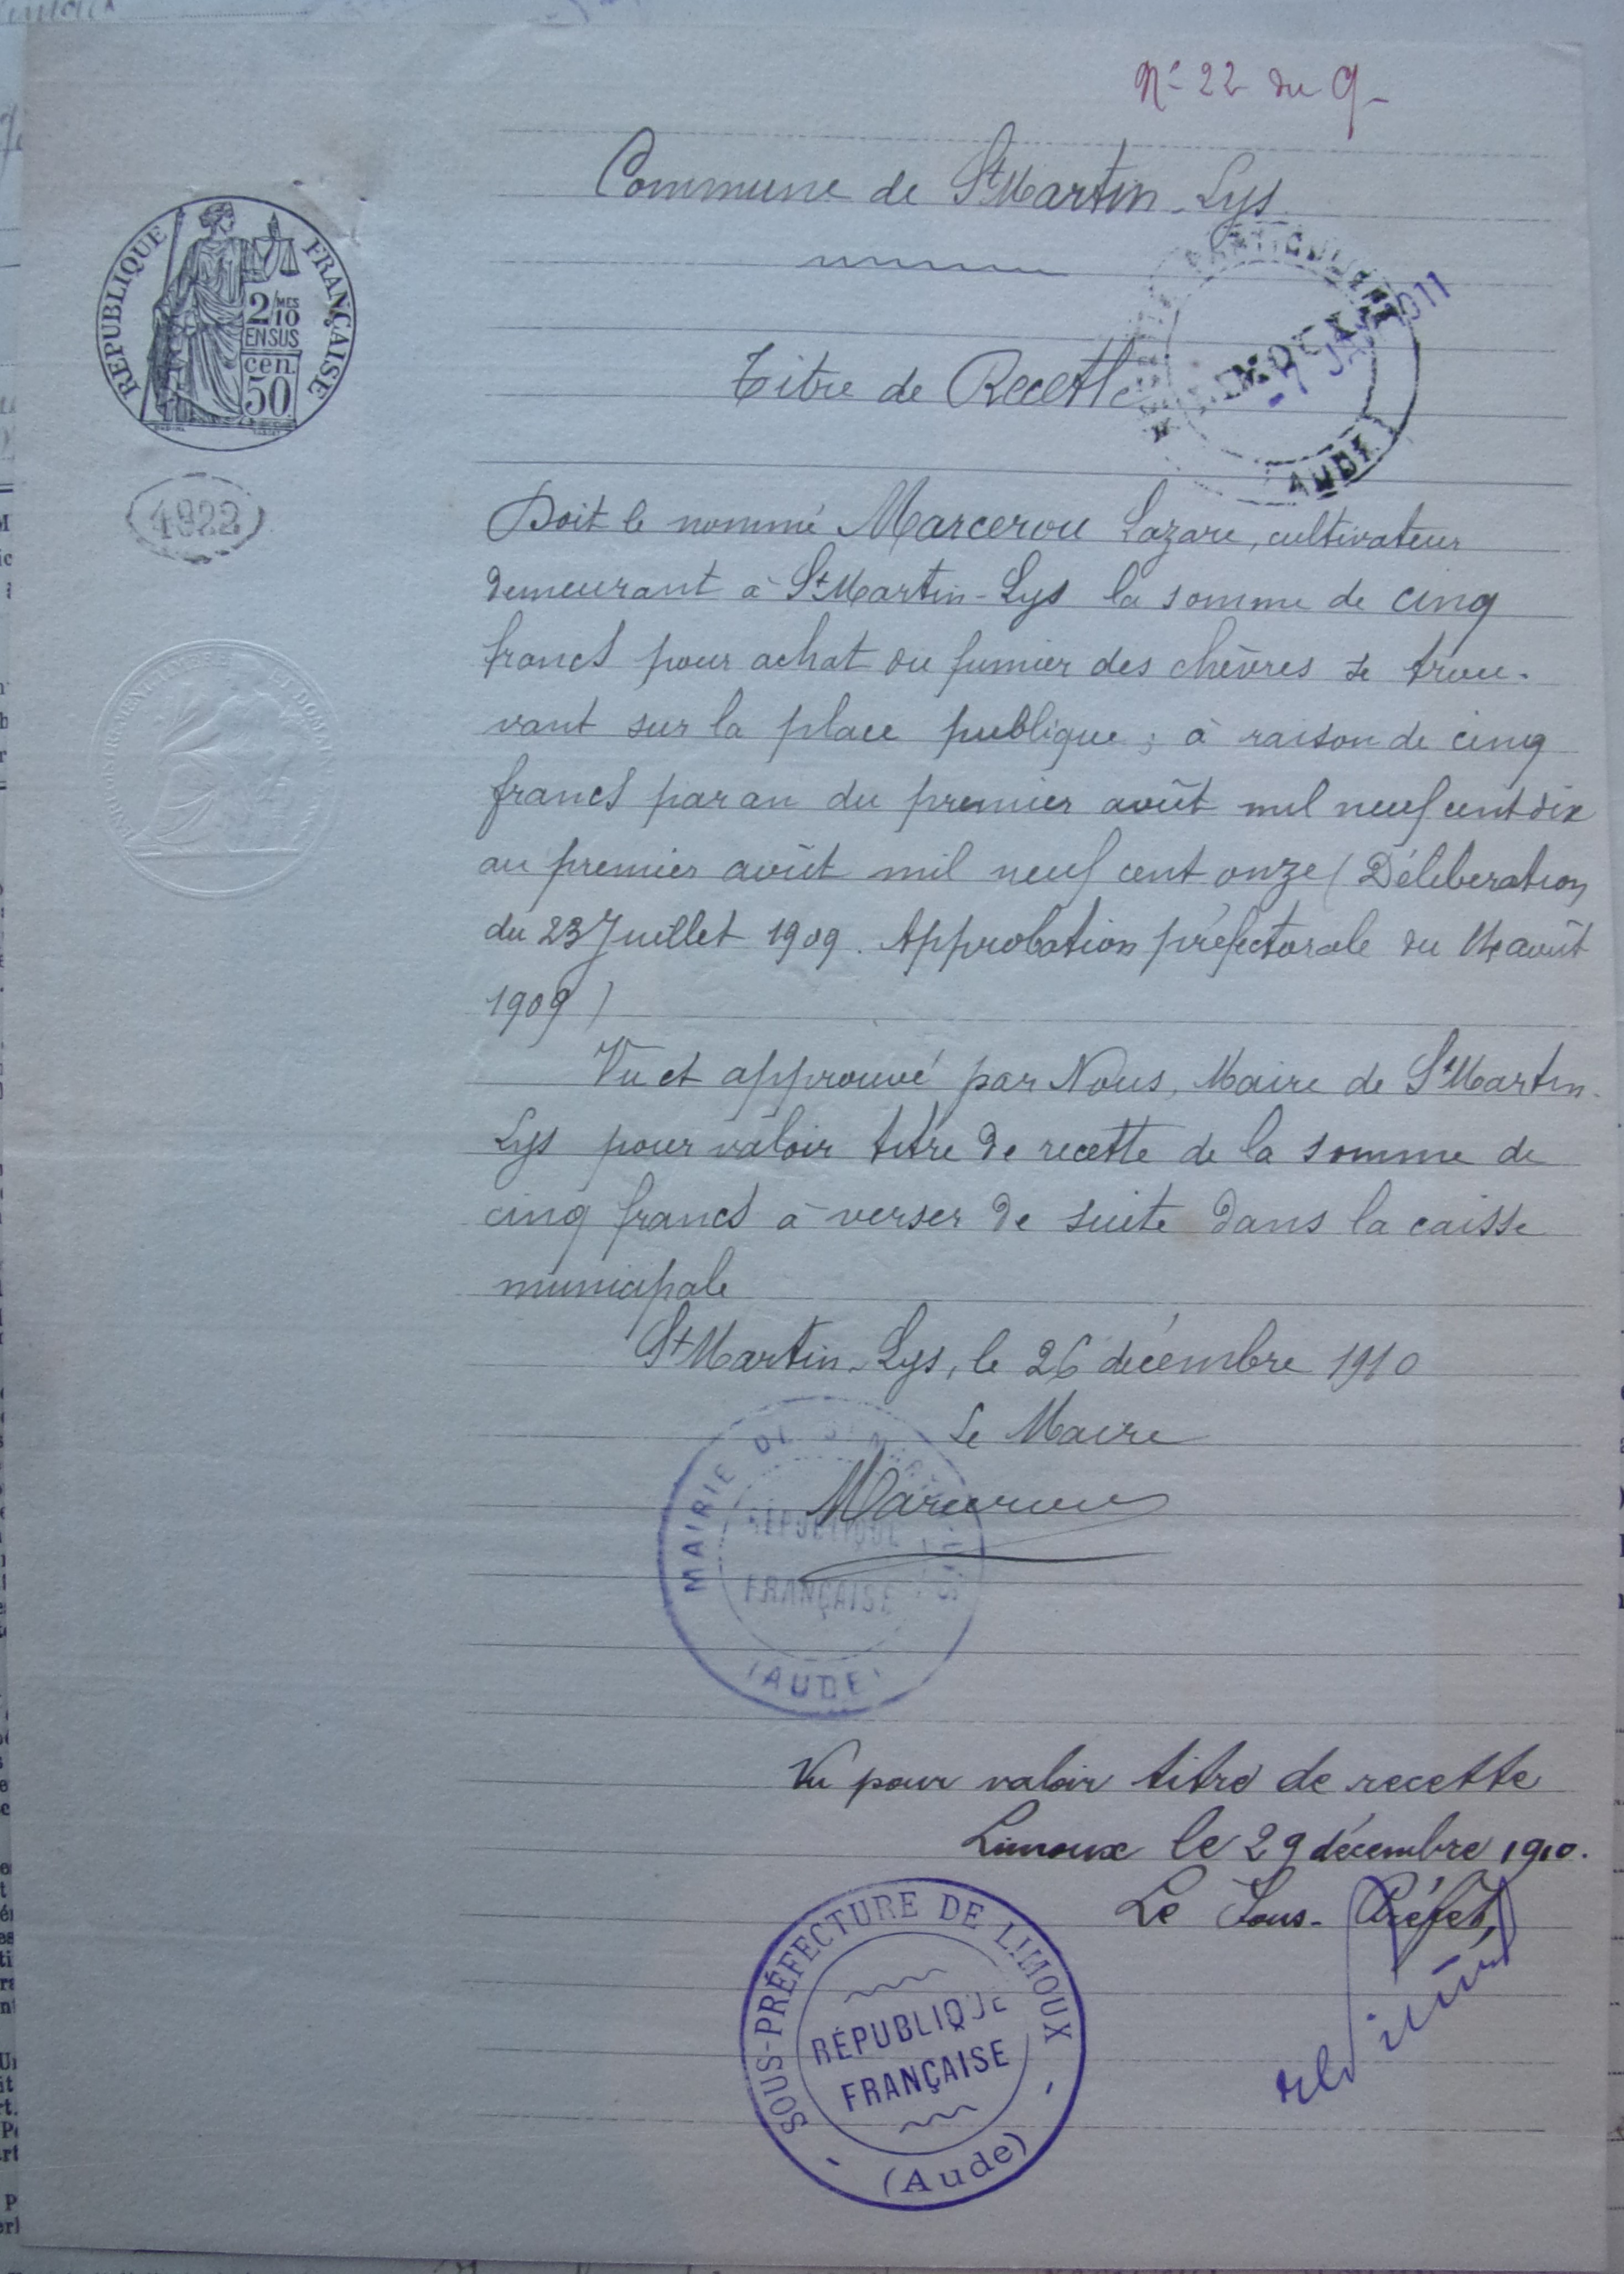 N° 22 du 9
Commune de St Martin-Lys
RÉPUBLIQUE FRANÇAISE
2/MES
10
EN SUS
cen.
50
Titre de Recette
AUDE
4922
Doit le nommé Marcerou Lazare, cultivateur
demeurant à St Martin-Lys la somme de cinq
francs pour achat du fumier des chèvres se trou-
vant sur la place publique ; à raison de cinq
francs par an du premier août mil neuf cent dix
au premier août mil neuf cent onze (Déliberation
du 23 Juillet 1909. Approbation préfectorale du 14 août
1909)
Vu et approuvé par Nous, Maire de St Martin-
Lys pour valoir titre de recette de la somme de
cinq francs à verser de suite dans la caisse
municipale
St Martin-Lys, le 26 décembre 1910
Le Maire
Marcerou
MAIRIE DE ST
RÉPUBLIQUE
FRANÇAISE
(AUDE)
Vu pour valoir titre de recette
Limoux le 29 décembre 1910.
Le Sous-Préfet,
SOUS-PRÉFECTURE DE LIMOUX
RÉPUBLIQUE
FRANÇAISE
(Aude)